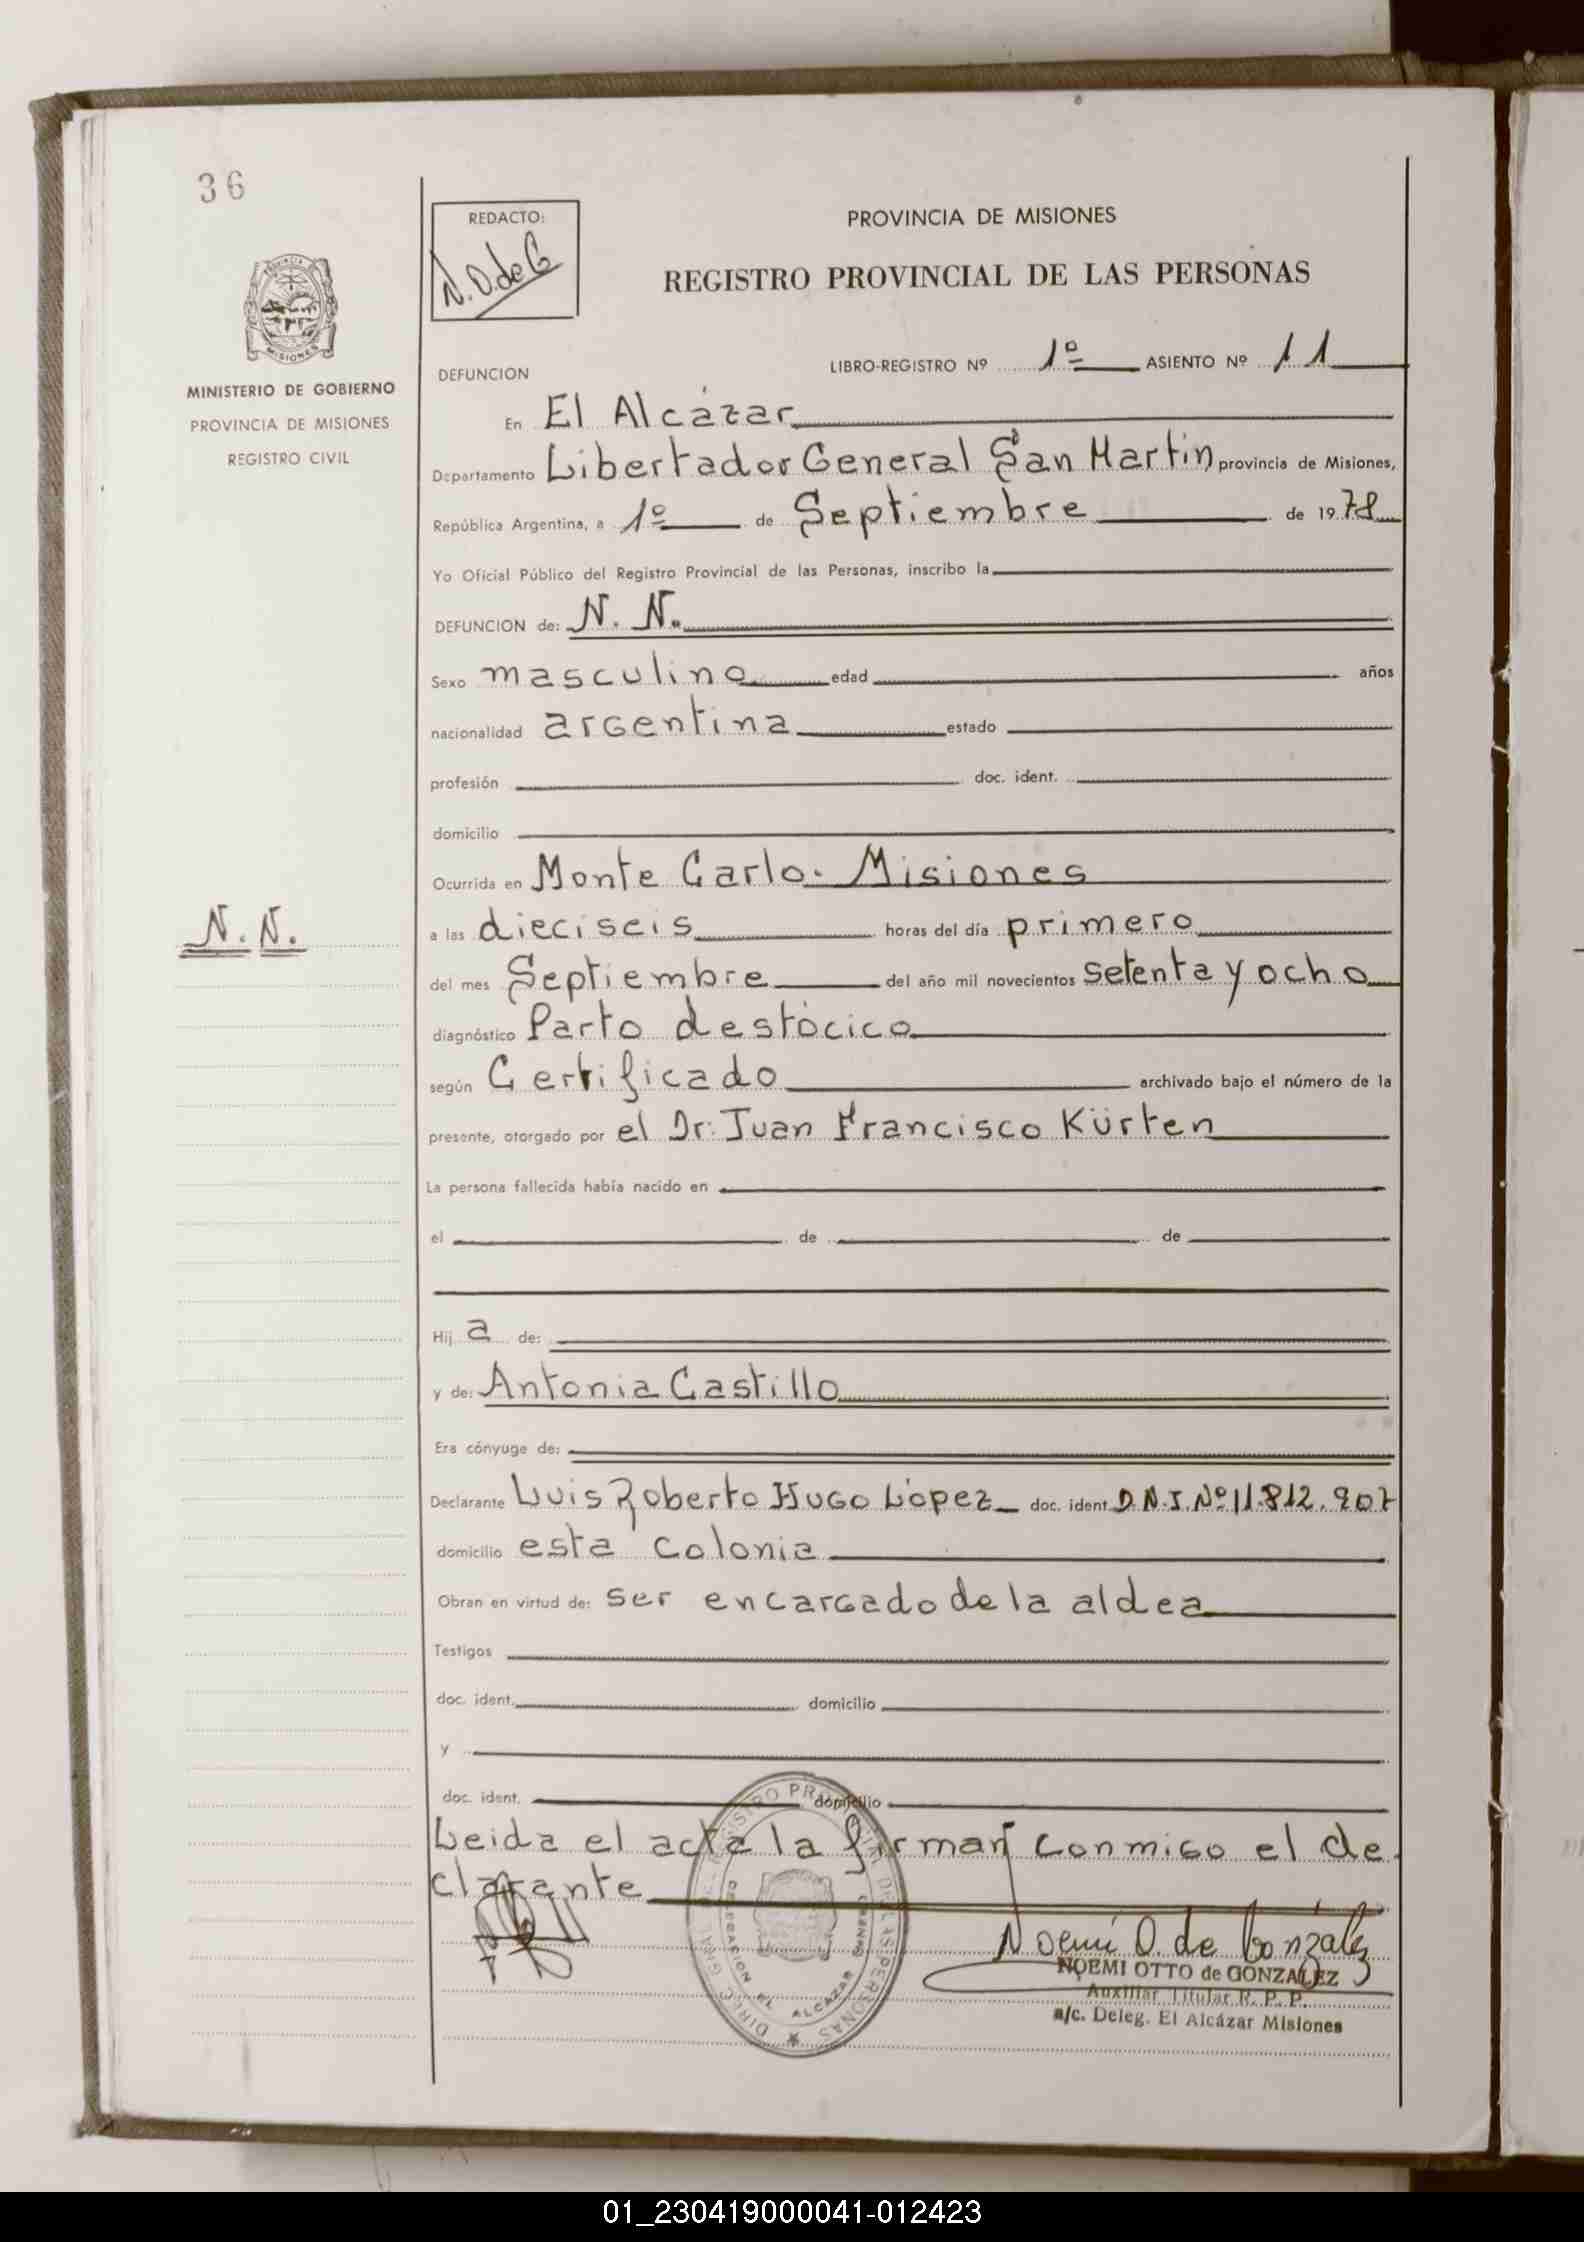 36
REDACTO:
N. O. de G
PROVINCIA DE MISIONES
REGISTRO PROVINCIAL DE LAS PERSONAS
PROVINCIA
MISIONES
MINISTERIO DE GOBIERNO
PROVINCIA DE MISIONES
REGISTRO CIVIL
LIBRO-REGISTRO Nº 1º ASIENTO Nº 11
DEFUNCION
En El Alcázar
Departamento Libertador General San Martin provincia de Misiones,
República Argentina, a 1º de Septiembre de 1978
Yo Oficial Público del Registro Provincial de las Personas, inscribo la
DEFUNCION de: N. N.
Sexo masculino edad años
nacionalidad argentina estado
profesión doc. ident.
domicilio
Ocurrida en Monte Carlo. Misiones
N. N.
a las dieciseis horas del día primero
del mes Septiembre del año mil novecientos setenta y ocho
diagnóstico Parto destócico
según Certificado archivado bajo el número de la
presente, otorgado por el Dr: Juan Francisco Kürten
La persona fallecida había nacido en
el de de
Hij a de:
y de: Antonia Castillo
Era cónyuge de:
Declarante Luis Roberto Hugo López doc. ident. D.N.I. Nº 11.812.907
domicilio esta colonia
Obran en virtud de: ser encargado de la aldea
Testigos
doc. ident. domicilio
y
doc. ident. domicilio
Leida el acta la firman conmigo el de
clarante
DIREC. GRAL. DEL REGISTRO PROVINCIAL DE LAS PERSONAS
DELEGACION EL ALCAZAR
Noemí O. de González
NOEMI OTTO de GONZALEZ
Auxiliar Titular R. P. P.
a/c. Deleg. El Alcázar Misiones
01_230419000041-012423